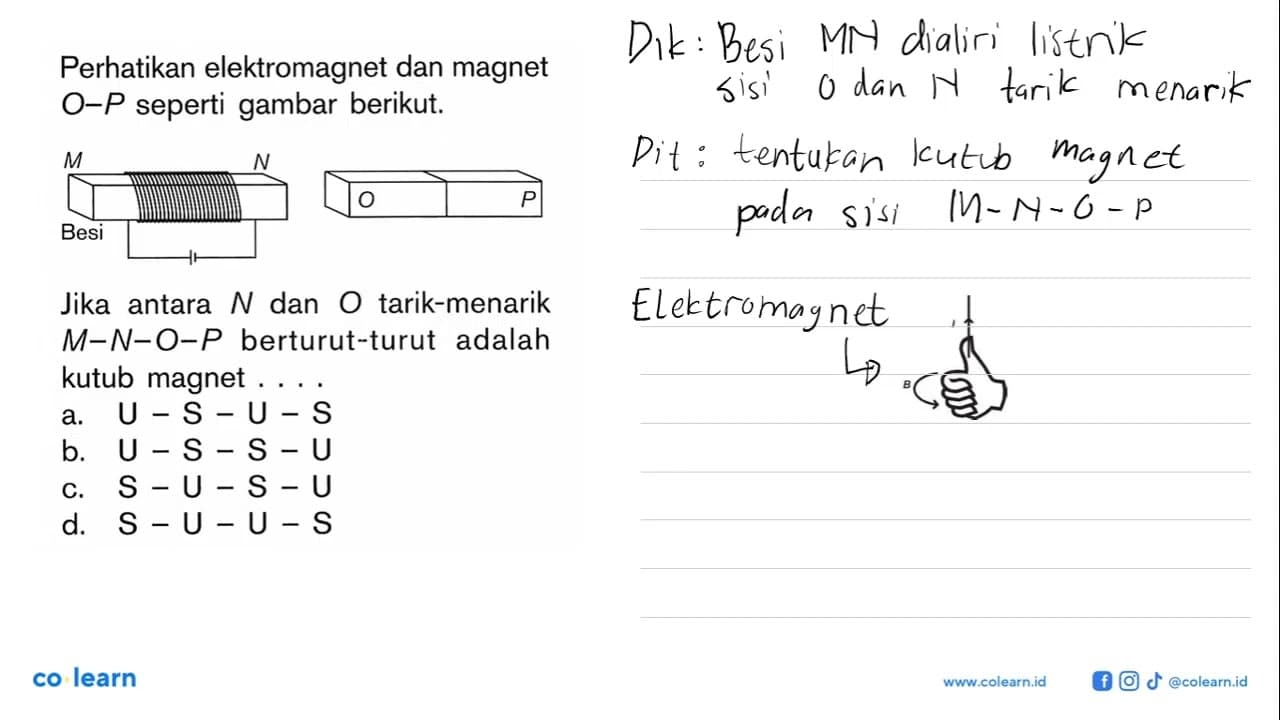 Perhatikan elektromagnet dan magnet
O-P seperti gambar berikut.
M
N
O
P
Besi
Jika antara N dan O tarik-menarik
M-N-O-P berturut-turut adalah
kutub magnet . . . .
a. U - S - U - S
b. U - S - S - U
c. S - U - S - U
d. S - U - U - S
Dik : Besi MN dialiri listrik
sisi O dan N tarik menarik
Dit : tentukan kutub magnet
pada sisi M-N-O-P
Elektromagnet
I
B
co learn
www.colearn.id
@colearn.id